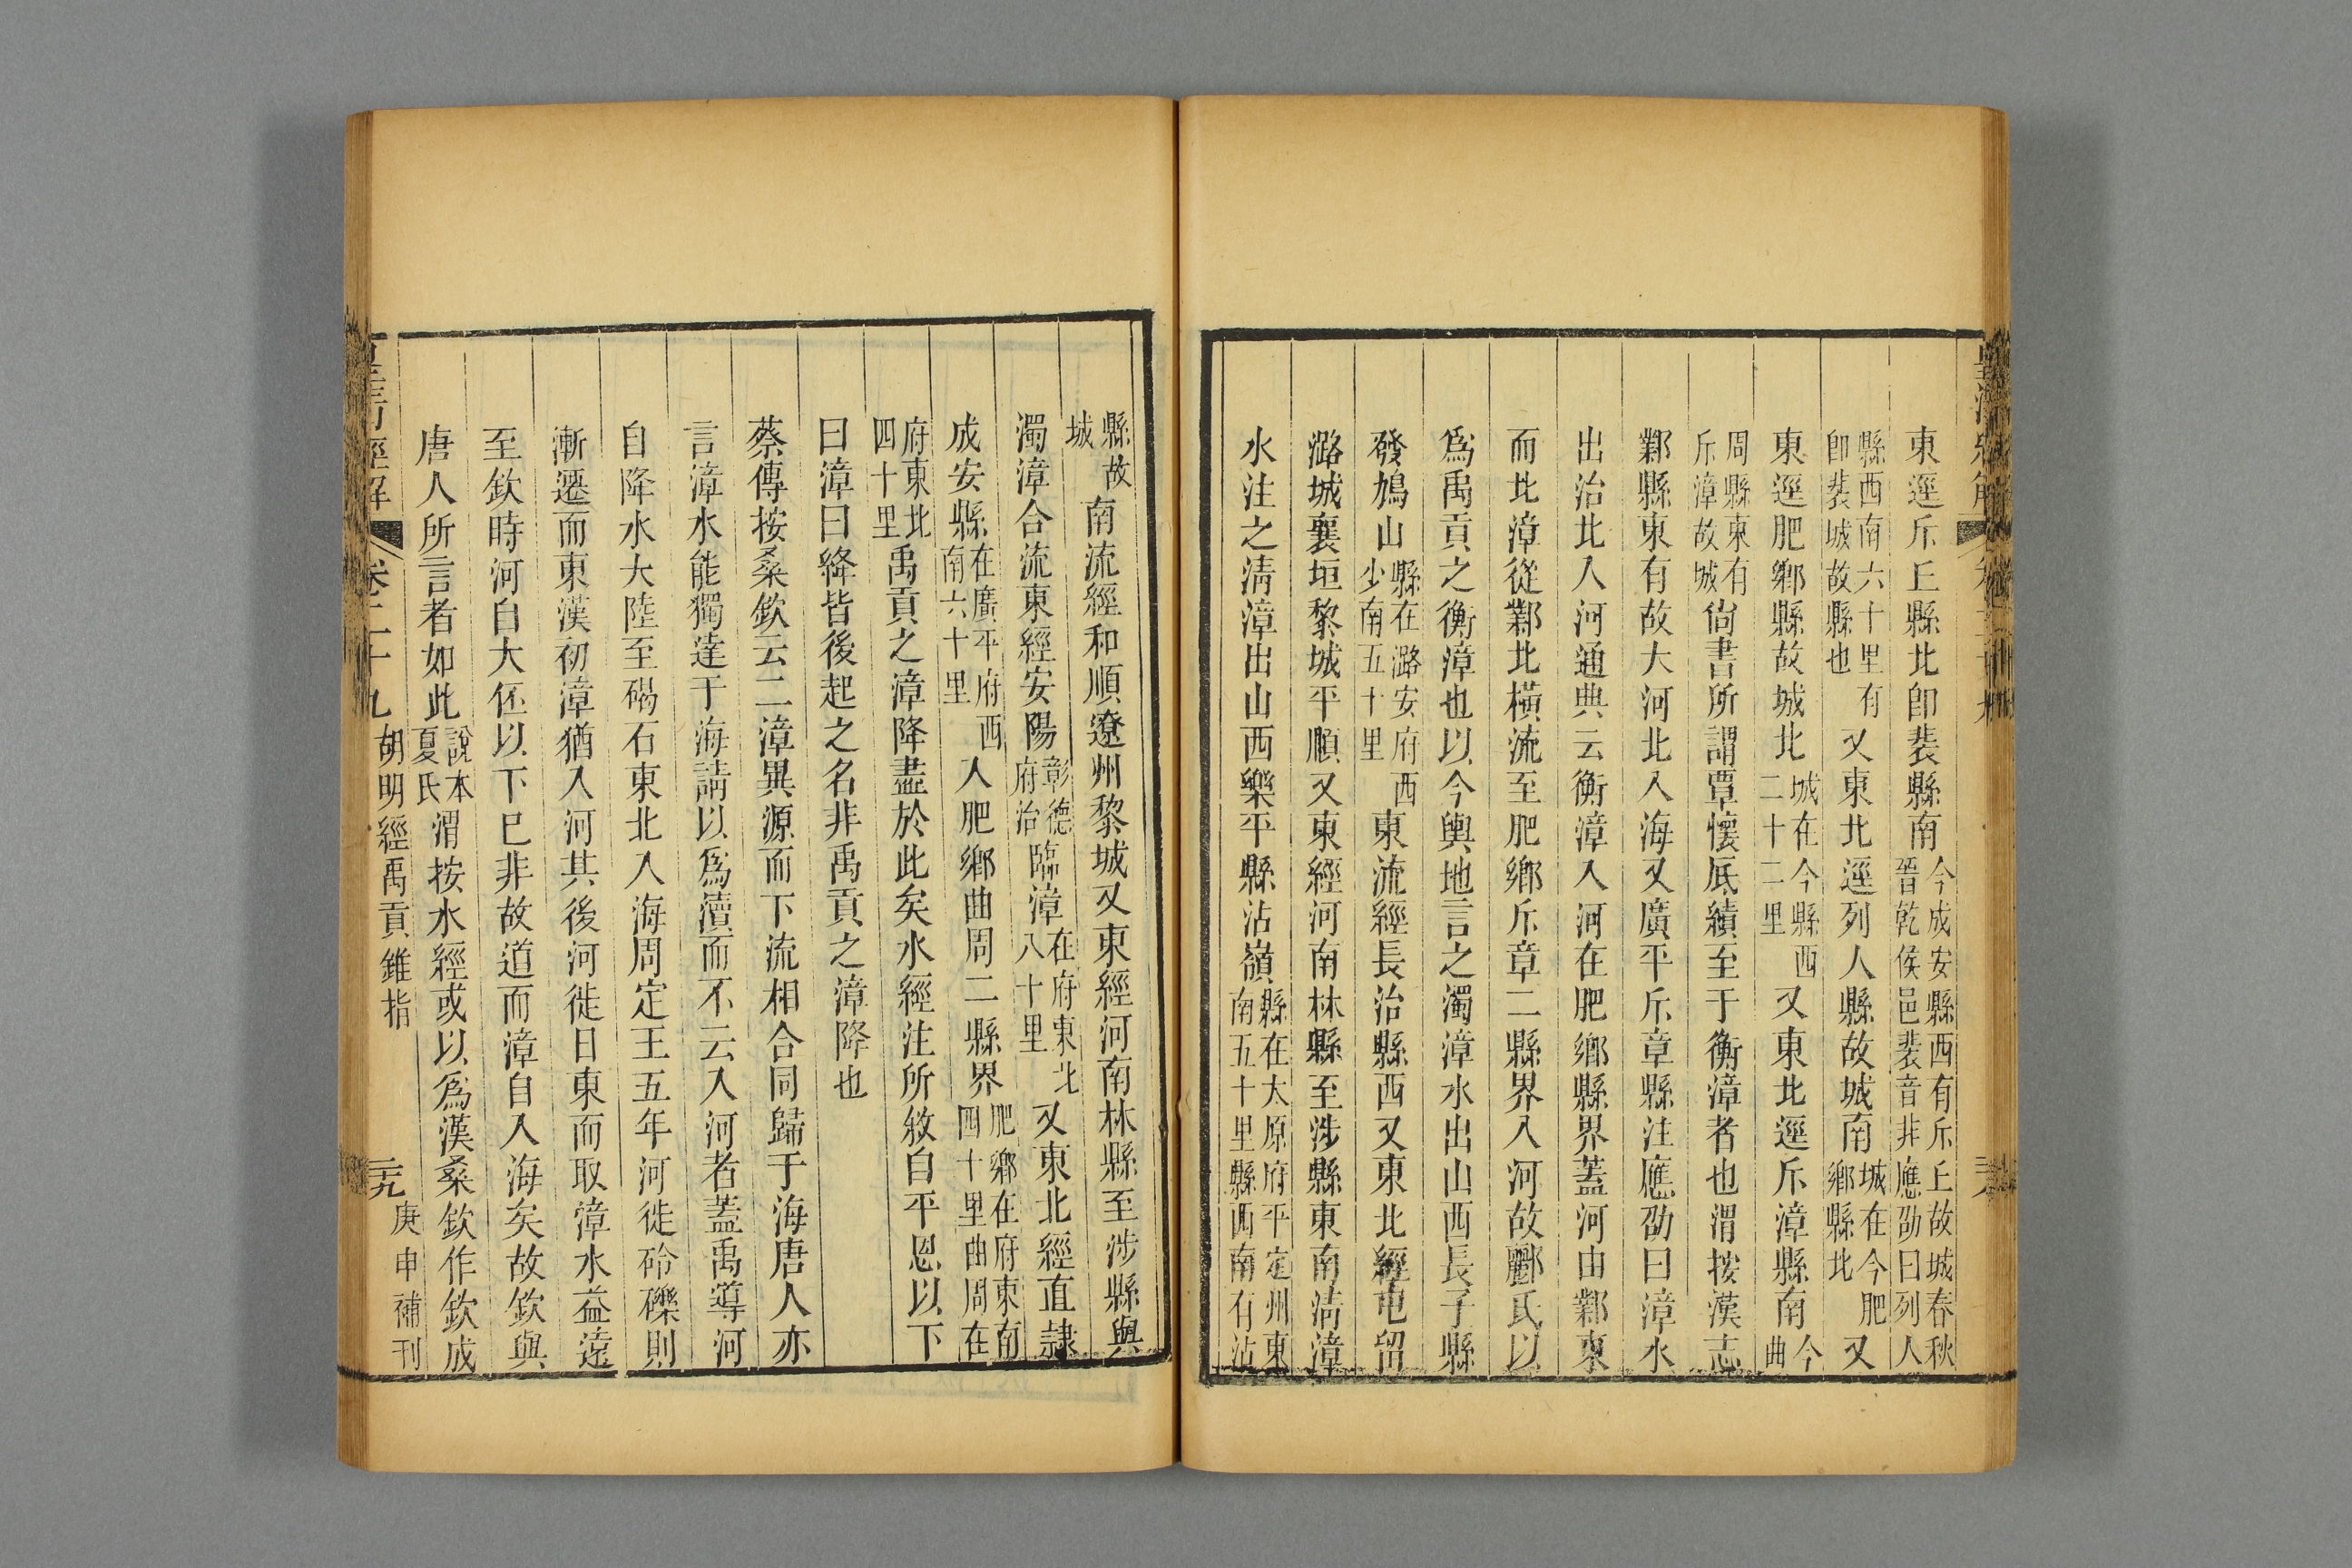 東逕斥丘縣北卽裴縣南今成安縣西有斥丘故城春秋晉乾侯邑裴音非應劭曰列人
縣西南六十里有卽裴城故縣也又東北逕列人縣故城南城在今肥鄉縣北又
東逕肥鄉縣故城北城在今縣西二十二里又東北逕斥漳縣南今曲
周縣東有斥漳故城尙書所謂覃懷厎績至于衡漳者也渭按漢志
鄴縣東有故大河北入海又廣平斥章縣注應劭曰漳水
出治北入河通典云衡漳入河在肥鄉縣界蓋河由鄴東
而北漳從鄴北橫流至肥鄉斥章二縣界入河故酈氏以
爲禹貢之衡漳也以今輿地言之濁漳水出山西長子縣
發鳩山縣在潞安府西少南五十里東流經長治縣西又東北經屯留
潞城襄垣黎城平順又東經河南林縣至涉縣東南淸漳
水注之淸漳出山西樂平縣沾嶺縣在太原府平定州東南五十里縣西南有沾
縣故城南流經和順遼州黎城又東經河南林縣至涉縣與
濁漳合流東經安陽彰德府治臨漳在府東北八十里又東北經直隷
成安縣在廣平府西南六十里入肥鄉曲周二縣界肥鄉在府東南四十里曲周在
府東北四十里禹貢之漳降盡於此矣水經注所敘自平恩以下
曰漳曰絳皆後起之名非禹貢之漳降也
蔡傳按桑欽云二漳異源而下流相合同歸于海唐人亦
言漳水能獨達于海請以爲瀆而不云入河者蓋禹導河
自降水大陸至碣石東北入海周定王五年河徙砱礫則
漸遷而東漢初漳猶入河其後河徙日東而取漳水益遠
至欽時河自大伾以下已非故道而漳自入海矣故欽與
唐人所言者如此說本夏氏渭按水經或以爲漢桑欽作欽成
皇淸經解 卷二十九 胡明經禹貢錐指 二十九 庚申補刊